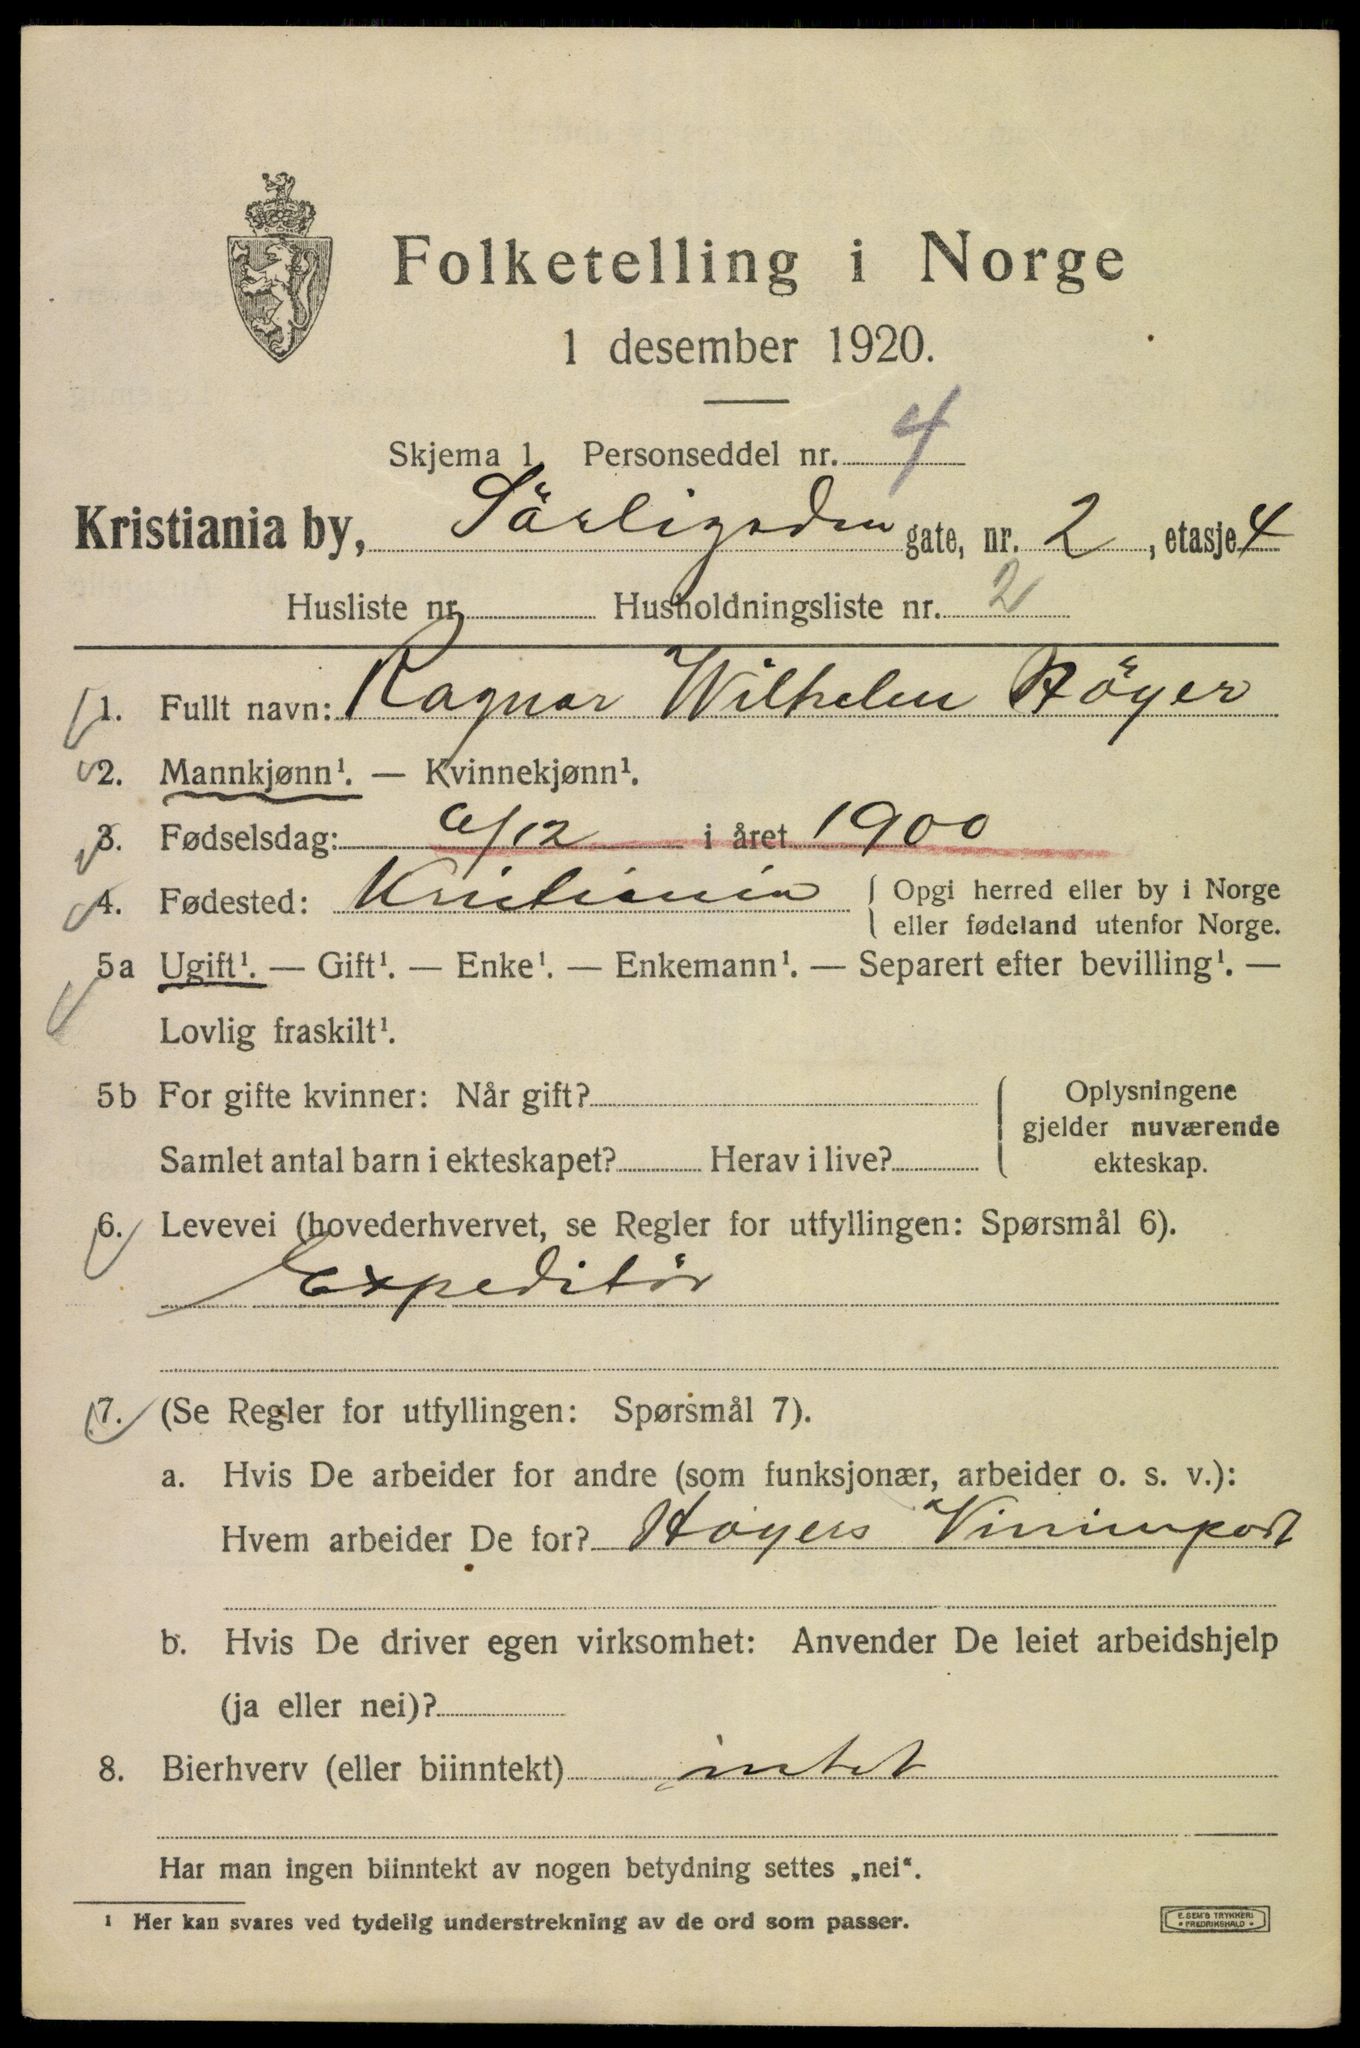 Folketelling i Norge
1 desember 1920.
Skjema 1 Personseddel nr. 4
Kristiania by, gate, nr. 2, etasje 4
Husliste nr. Husholdningsliste nr. 2
1. Fullt navn: Ragnar Wilhelm Höyer
2. Mannkjønn¹. — Kvinnekjønn¹.
3. Fødselsdag: /12 i året 1900
4. Fødested: Kristiania { Opgi herred eller by i Norge
eller fødeland utenfor Norge.
5a Ugift¹. — Gift¹. — Enke¹. — Enkemann¹. — Separert efter bevilling¹. —
Lovlig fraskilt¹.
5b For gifte kvinner: Når gift? { Oplysningene
gjelder nuværende
Samlet antal barn i ekteskapet? Herav i live? ekteskap.
6. Levevei (hovederhvervet, se Regler for utfyllingen: Spørsmål 6).
Expeditör
7. (Se Regler for utfyllingen: Spørsmål 7).
a. Hvis De arbeider for andre (som funksjonær, arbeider o. s. v.):
Hvem arbeider De for? Høyers Vinimport
b. Hvis De driver egen virksomhet: Anvender De leiet arbeidshjelp
(ja eller nei)?
8. Bierhverv (eller biinntekt) intet
Har man ingen biinntekt av nogen betydning settes „nei“.
¹ Her kan svares ved tydelig understrekning av de ord som passer.
E. SEM'S TRYKKERI
• FREDRIKSHALD •